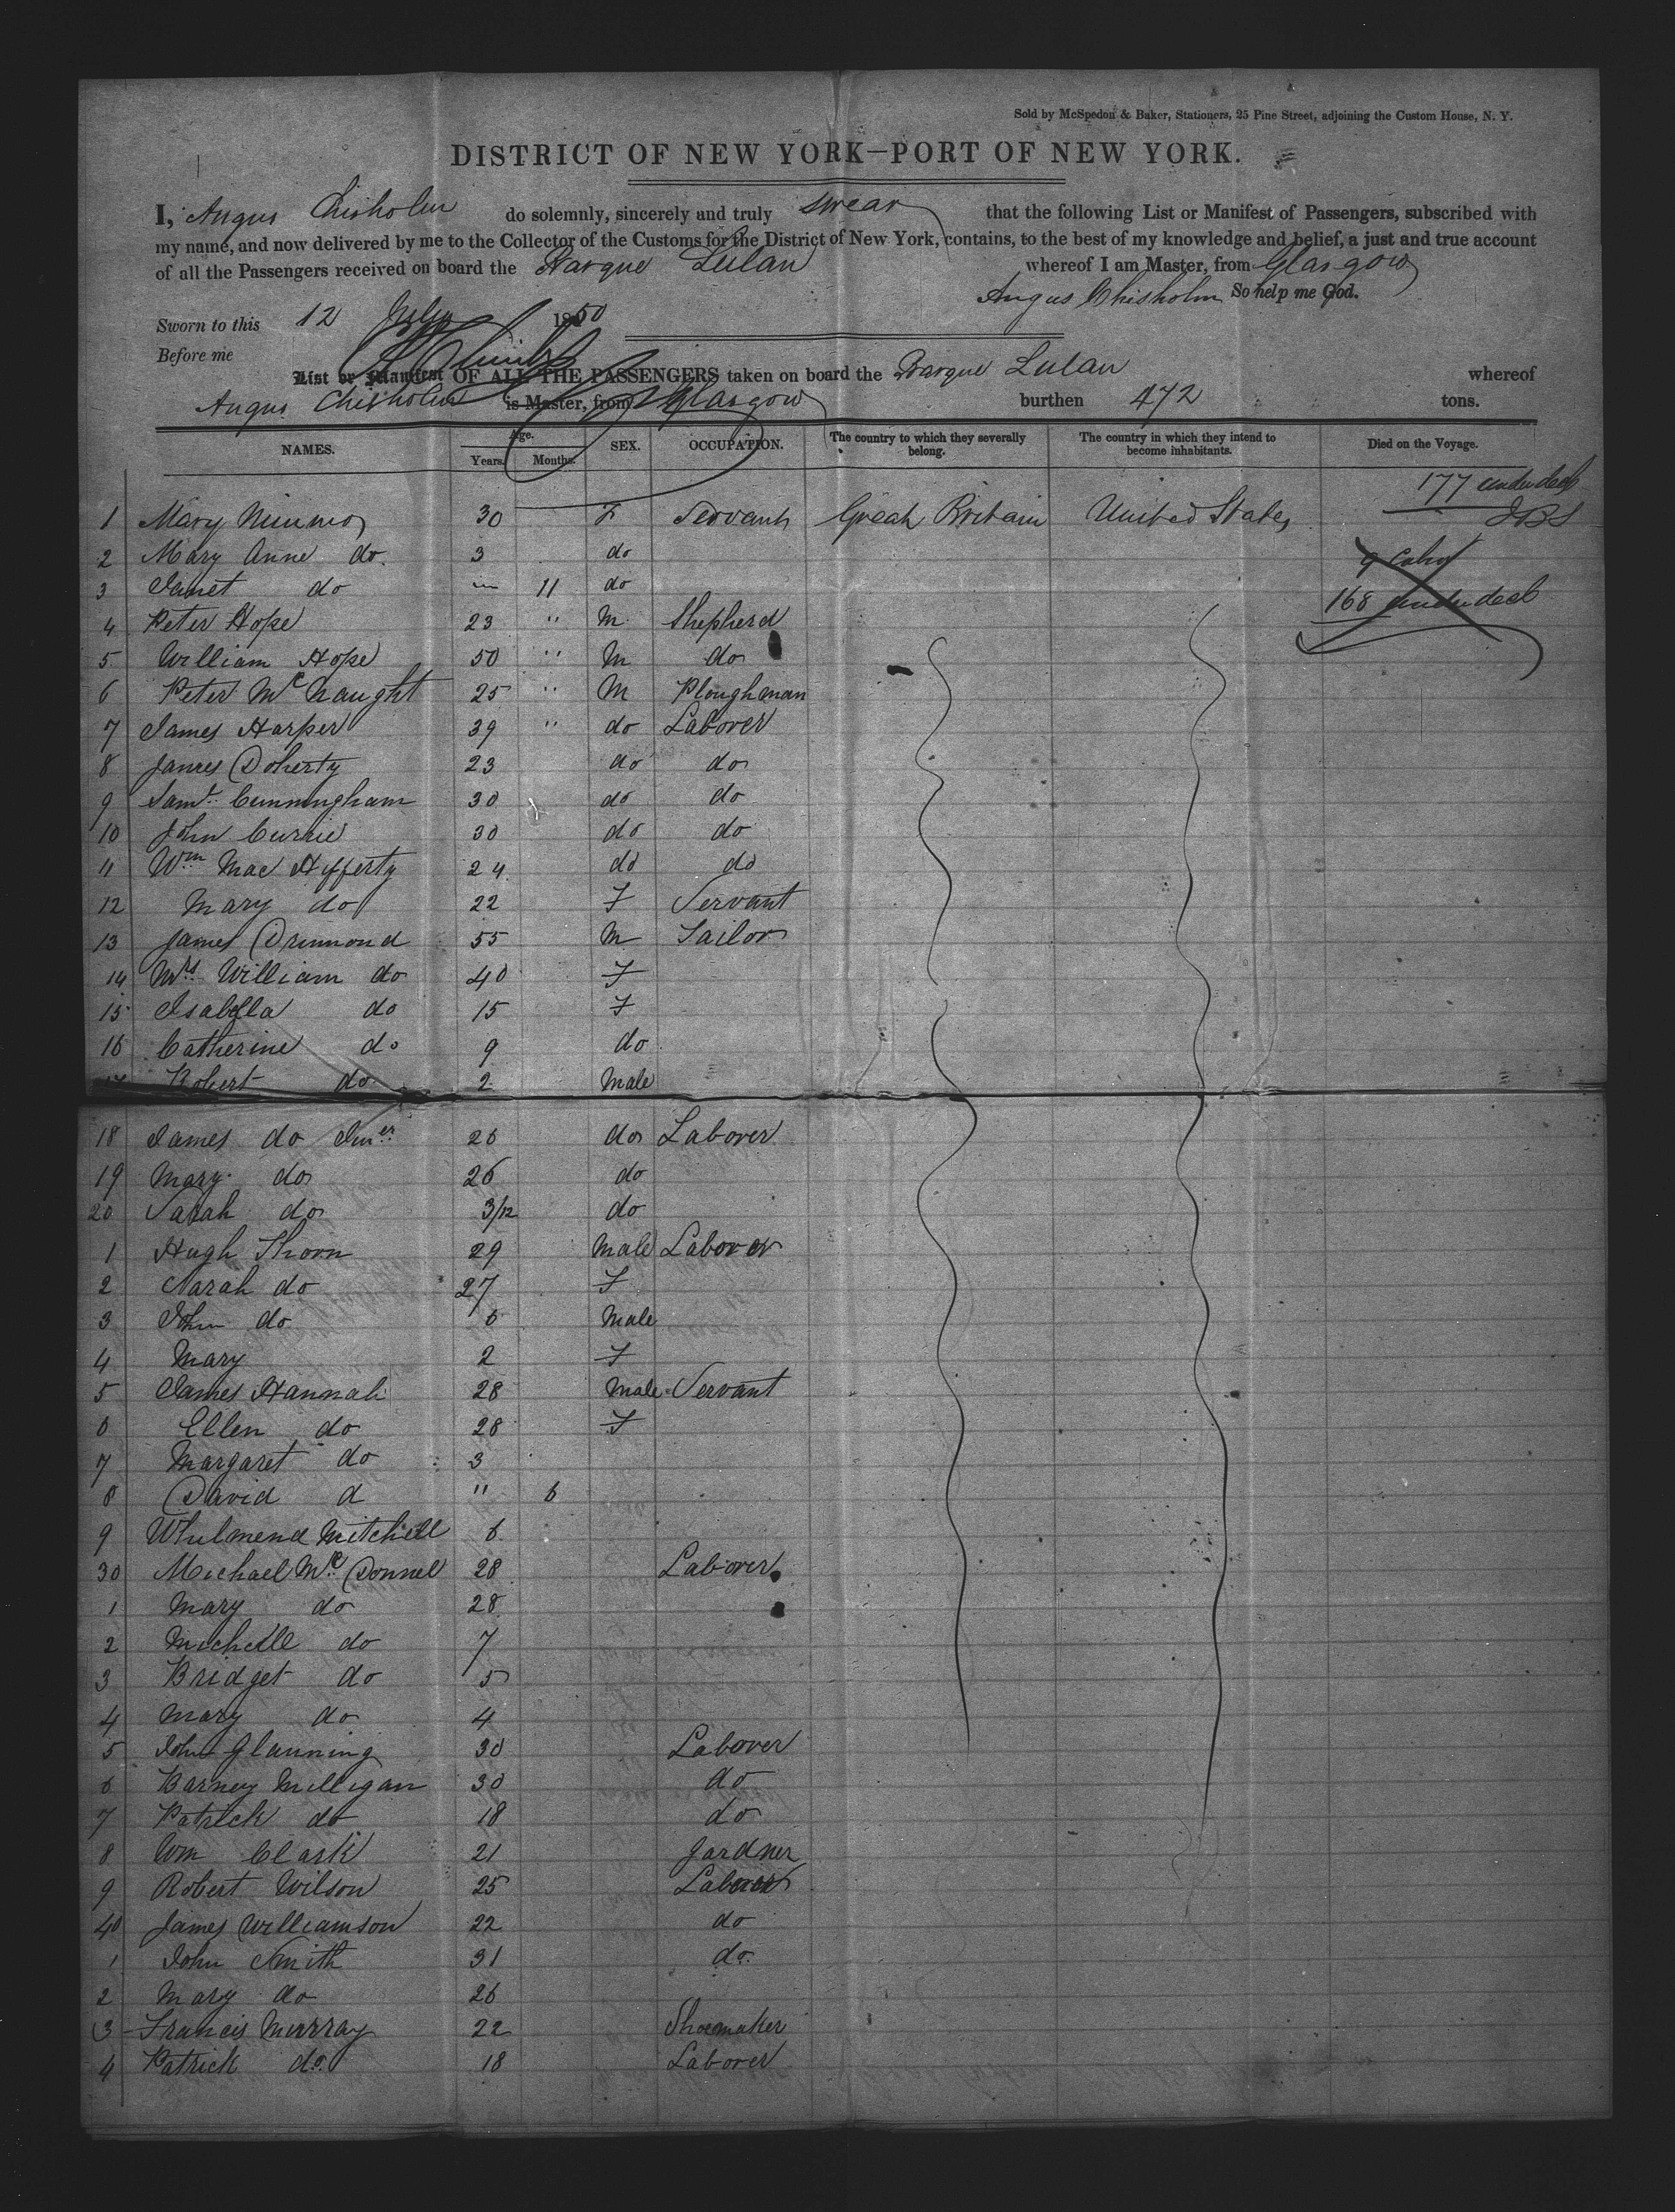 Sold by McSpedon & Baker, Stationers, 25 Pine Street, adjoining the Custom House, N. Y.
DISTRICT OF NEW YORK—PORT OF NEW YORK.
I, Angus Chisholm do solemnly, sincerely and truly swear that the following List or Manifest of Passengers, subscribed with
my name, and now delivered by me to the Collector of the Customs for the District of New York, contains, to the best of my knowledge and belief, a just and true account
of all the Passengers received on board the Barque Lulan whereof I am Master, from Glasgow
Angus Chisholm So help me God.
Sworn to this 12 July 1850
Before me
List or Manifest OF ALL THE PASSENGERS taken on board the Barque Lulan whereof
Angus Chisholm is Master, from Glasgow burthen 472 tons.
NAMES. Age. Years. Months. SEX. OCCUPATION. The country to which they severally belong. The country in which they intend to become inhabitants. Died on the Voyage.
177 under deck
1 Mary Nimmo 30 F Servant Great Britain United States JBS
2 Mary Anne do 3 do
9 cabin
3 Janet do 11 do
168 under deck
4 Peter Hope 23 " M Shepherd
5 William Hope 50 " M do
6 Peter Mc Naught 25 " M Ploughman
7 James Harper 39 " do Laborer
8 James Doherty 23 do do
9 Saml. Cunningham 30 do do
10 John Currie 30 do do
11 Wm Mac Hefferty 24 do do
12 Mary do 22 F Servant
13 James Drummond 55 M Sailor
14 Mrs William do 40 F
15 Isabella do 15 F
16 Catherine do 9 do
17 Robert do 2 Male
18 James do Juner 26 do Laborer
19 Mary do 26 do
20 Sarah do 3/12 do
1 Hugh Thorn 29 Male Laborer
2 Sarah do 27 F
3 John do 6 Male
4 Mary 2 F
5 James Hannah 28 Male Servant
6 Ellen do 28 F
7 Margaret do 3
8 David d " 6
9 Mitchell 6
30 Michael Mc Donnel 28 Laborer
1 Mary do 28
2 Michell do 7
3 Bridget do 5
4 Mary do 4
5 John Glanning 30 Laborer
6 Barney Milligan 30 do
7 Patrick do 18 do
8 Wm Clark 21 Gardner
9 Robert Wilson 25 Laborer
40 James Williamson 22 do
1 John Smith 31 do
2 Mary do 26
3 Francis Murray 22 Shoemaker
4 Patrick do 18 Laborer